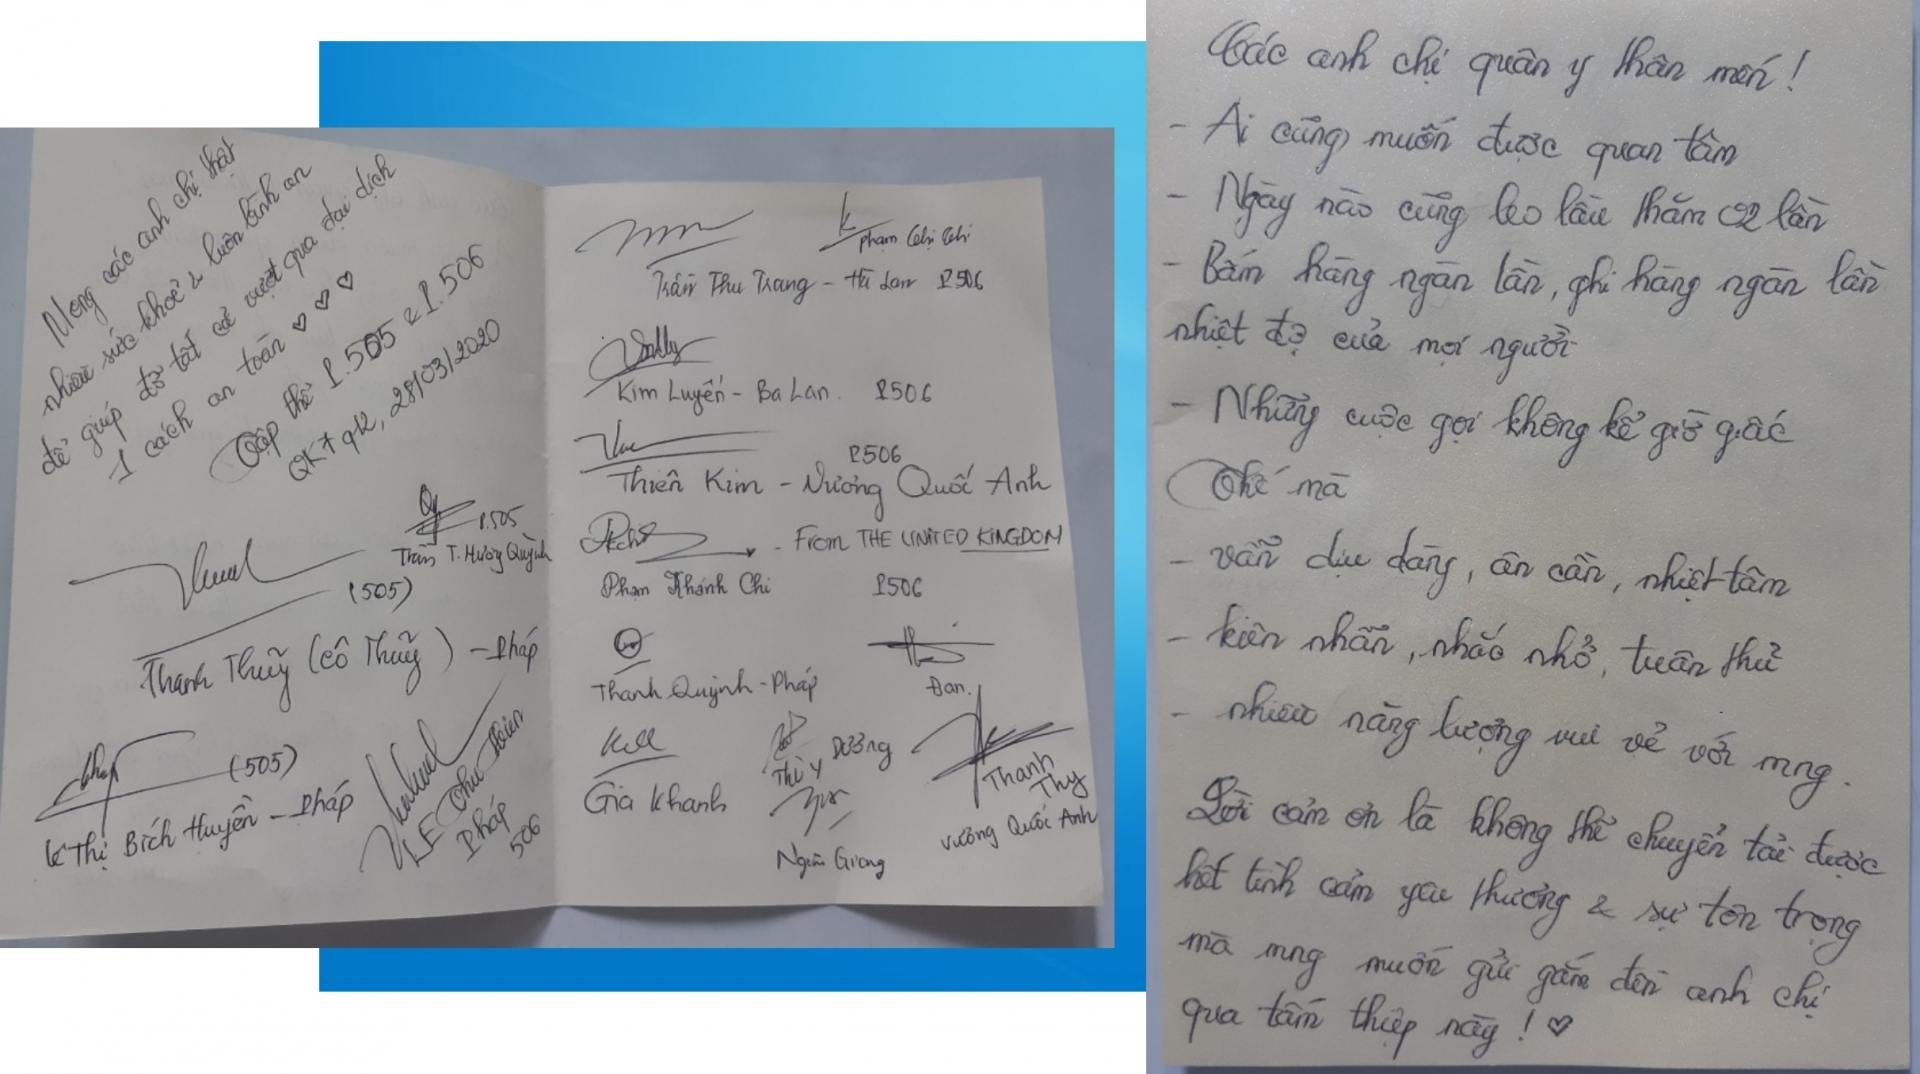 Mong các anh chị thật
nhiều sức khoẻ & luôn lành an
để giúp đỡ tất cả vượt qua đại dịch
1 cách an toàn ♡ ♡ ♡
Tập thể P.505 & P.506
QK7 q12, 28/03/2020
P.505
Trần T. Hương Quỳnh
(505)
Thanh Thuỷ (cô Thuỷ) - Pháp
(505)
Lê Thị Bích Huyền - Pháp
LE Thu Hiền
Pháp
506
Phạm Chị Chi
Trần Thu Trang - Hà Lan P506
Kim Luyến - Ba Lan. P506
P506
Thiên Kim - Vương Quốc Anh
- From THE UNITED KINGDOM
Phạm Khánh Chi P506
Thanh Quỳnh - Pháp
Đan.
Gia Khanh
Thùy Dương
Thanh
Thy
Vương Quốc Anh
Ngân Giang
Các anh chị quân y thân mến!
- Ai cũng muốn được quan tâm
- Ngày nào cũng leo lầu thăm 02 lần
- Bấm hàng ngàn lần, ghi hàng ngàn lần
nhiệt độ của mọi người
- Những cuộc gọi không kể giờ giấc
Thế mà
- vẫn dịu dàng, ân cần, nhiệt tâm
- kiên nhẫn, nhắc nhở, tuân thủ
- nhiều năng lượng vui vẻ với mng.
Lời cảm ơn là không thể chuyển tải được
hết tình cảm yêu thương & sự tôn trọng
mà mng muốn gửi gắm đến anh chị
qua tấm thiệp này! ♡